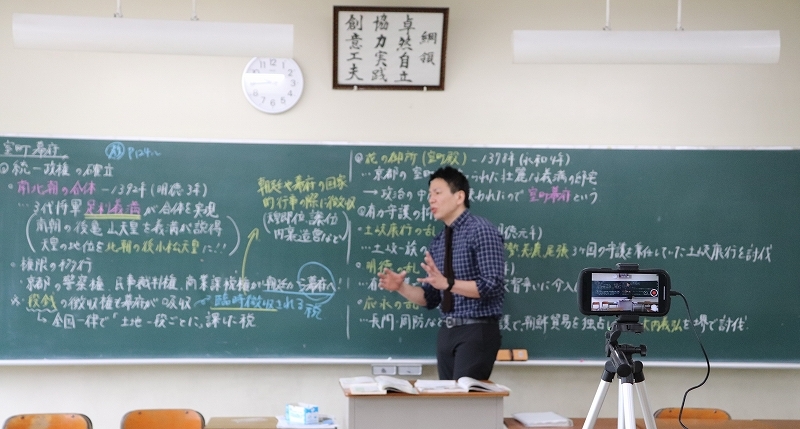 綱領
卓然自立
協力実践
創意工夫
室町幕府
P124~
◎統一政権の確立
・南北朝の合体 - 1392年(明徳3年)
…3代将軍足利義満が合体を実現
(南朝の後亀山天皇を義満が説得
天皇の地位を北朝の後小松天皇に!!)
・権限の
京都の警察権、民事裁判権、商業課税権が朝廷から幕府へ
段銭の徴収権も幕府が吸収
→臨時徴収される税
↳全国一律で「土地一段ごとに」課した税
朝廷や幕府の国家
的行事の際に徴収
(即位、譲位
内裏造営など)
◎花の御所(室町殿) - 1378年(永和4年)
…京都の室町
られた壮麗な義満の邸宅
→政治の中
われたので室町幕府という
◎有力守護の
・土岐康行の乱
…土岐一族の
伊勢、美濃、尾張3ヶ国の守護を兼任していた土岐康行を討伐
・明徳の乱
・応永の乱
…長門・周防など
護で、朝鮮貿易を独占
大内義弘を堺で討伐